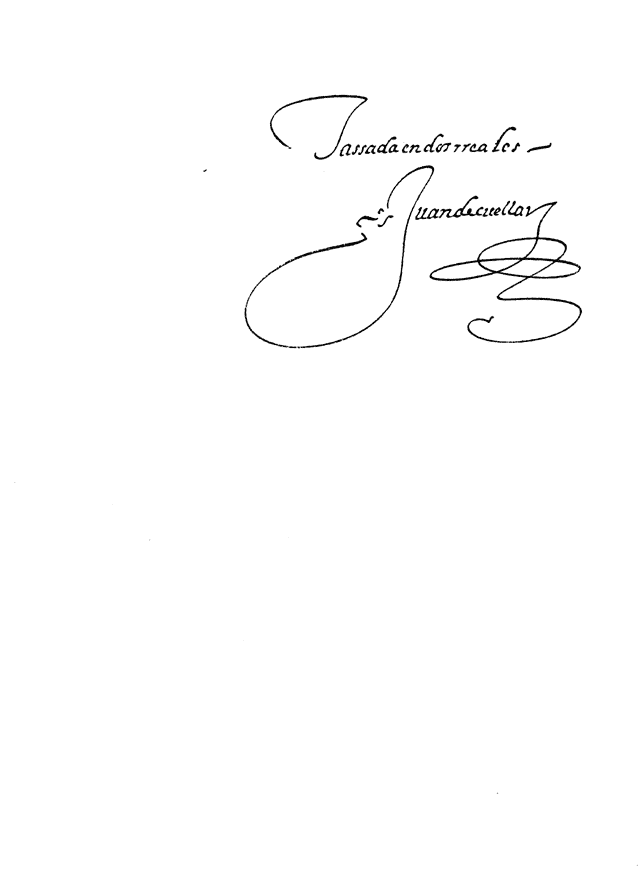 Tassada en dos rreales
Juan de cuellar